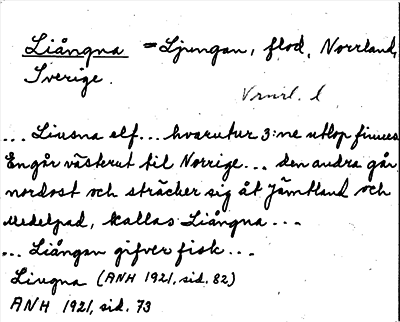 Liångna = Ljungan, flod, Norrland,
Sverige.
... Liusna elf... hvarutur 3:ne utlop finnes
En går västerut til Norrige... den andra går
nordost och strächer sig åt Jämtland och
Medelpad, kallas Liångna...
... Liångan gifver fisk...
Liugna (ANH 1921, sid. 82)
ANH 1921, sid. 73